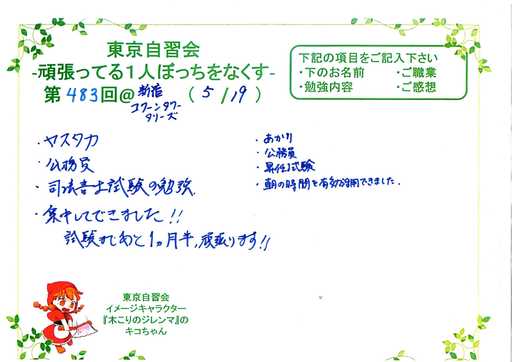 東京自習会
-頑張ってる1人ぼっちをなくす-
第483回@新宿 コクーンタワー タリーズ (5/19)
下記の項目をご記入下さい
・下のお名前 ・ご職業
・勉強内容 ・ご感想
・ヤスタカ
・公務員
・司法書士試験の勉強
・集中してできました!!
試験まであと1ヵ月半,頑張ります!!
・あかり
・公務員
・昇任試験
・朝の時間を有効活用できました.
東京自習会
イメージキャラクター
『木こりのジレンマ』の
キコちゃん